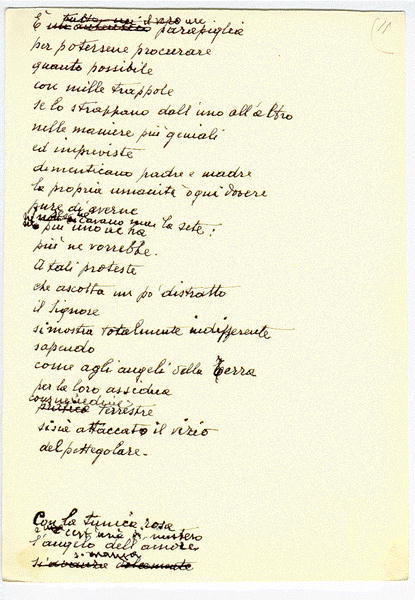 11
tutto un
È un autentico parapiglia
per potersene procurare
quanto possibile
con mille trappole
se lo strappano dall'uno all'altro
nelle maniere più geniali
ed impreviste
dimenticano padre e madre
la propria umanità ogni dovere
pure di averne
non se ne cavano mai la sete:
più uno ne ha
più ne vorrebbe.
A tali proteste
che ascolta un po' distratto
il Signore
si mostra totalmente indifferente
sapendo
come agli angeli della Terra
per la loro assidua
consuetudine
pratica terrestre
si sia attaccato il vizio
del pettegolare.
Con la tunica rosa
e cert'aria di mistero
l'angelo dell'amore
s'avanza
si avanza dolcemente